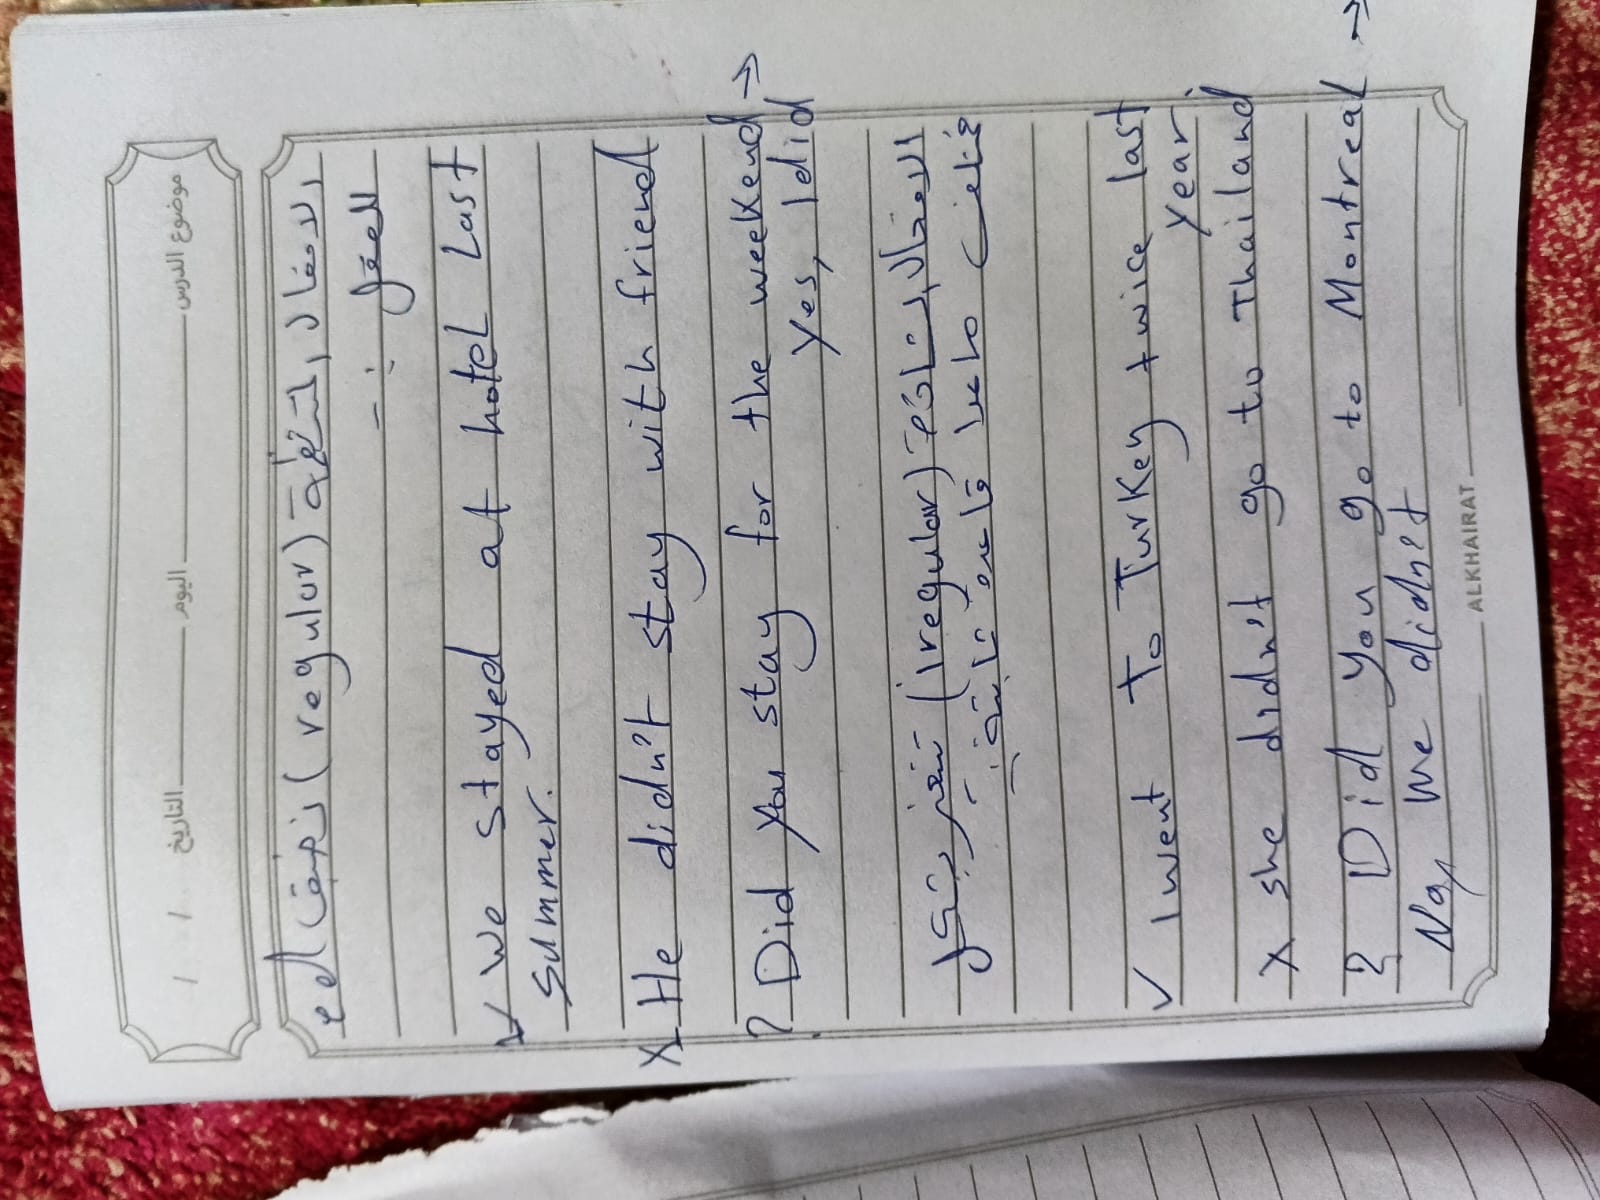 موضوع الدرس اليوم التاريخ / /
الافعال المنتظمة (regular) نضيف ed
للفعل :-
✓ we stayed at hotel Last
summer.
X He didn't stay with friend
? Did you stay for the weekend →
Yes, I did
الافعال (irregular)
✓ I went to Turkey twice last
year.
X she didn't go to Thailand
? Did you go to Montreal →
No, we didn't
ALKHAIRAT